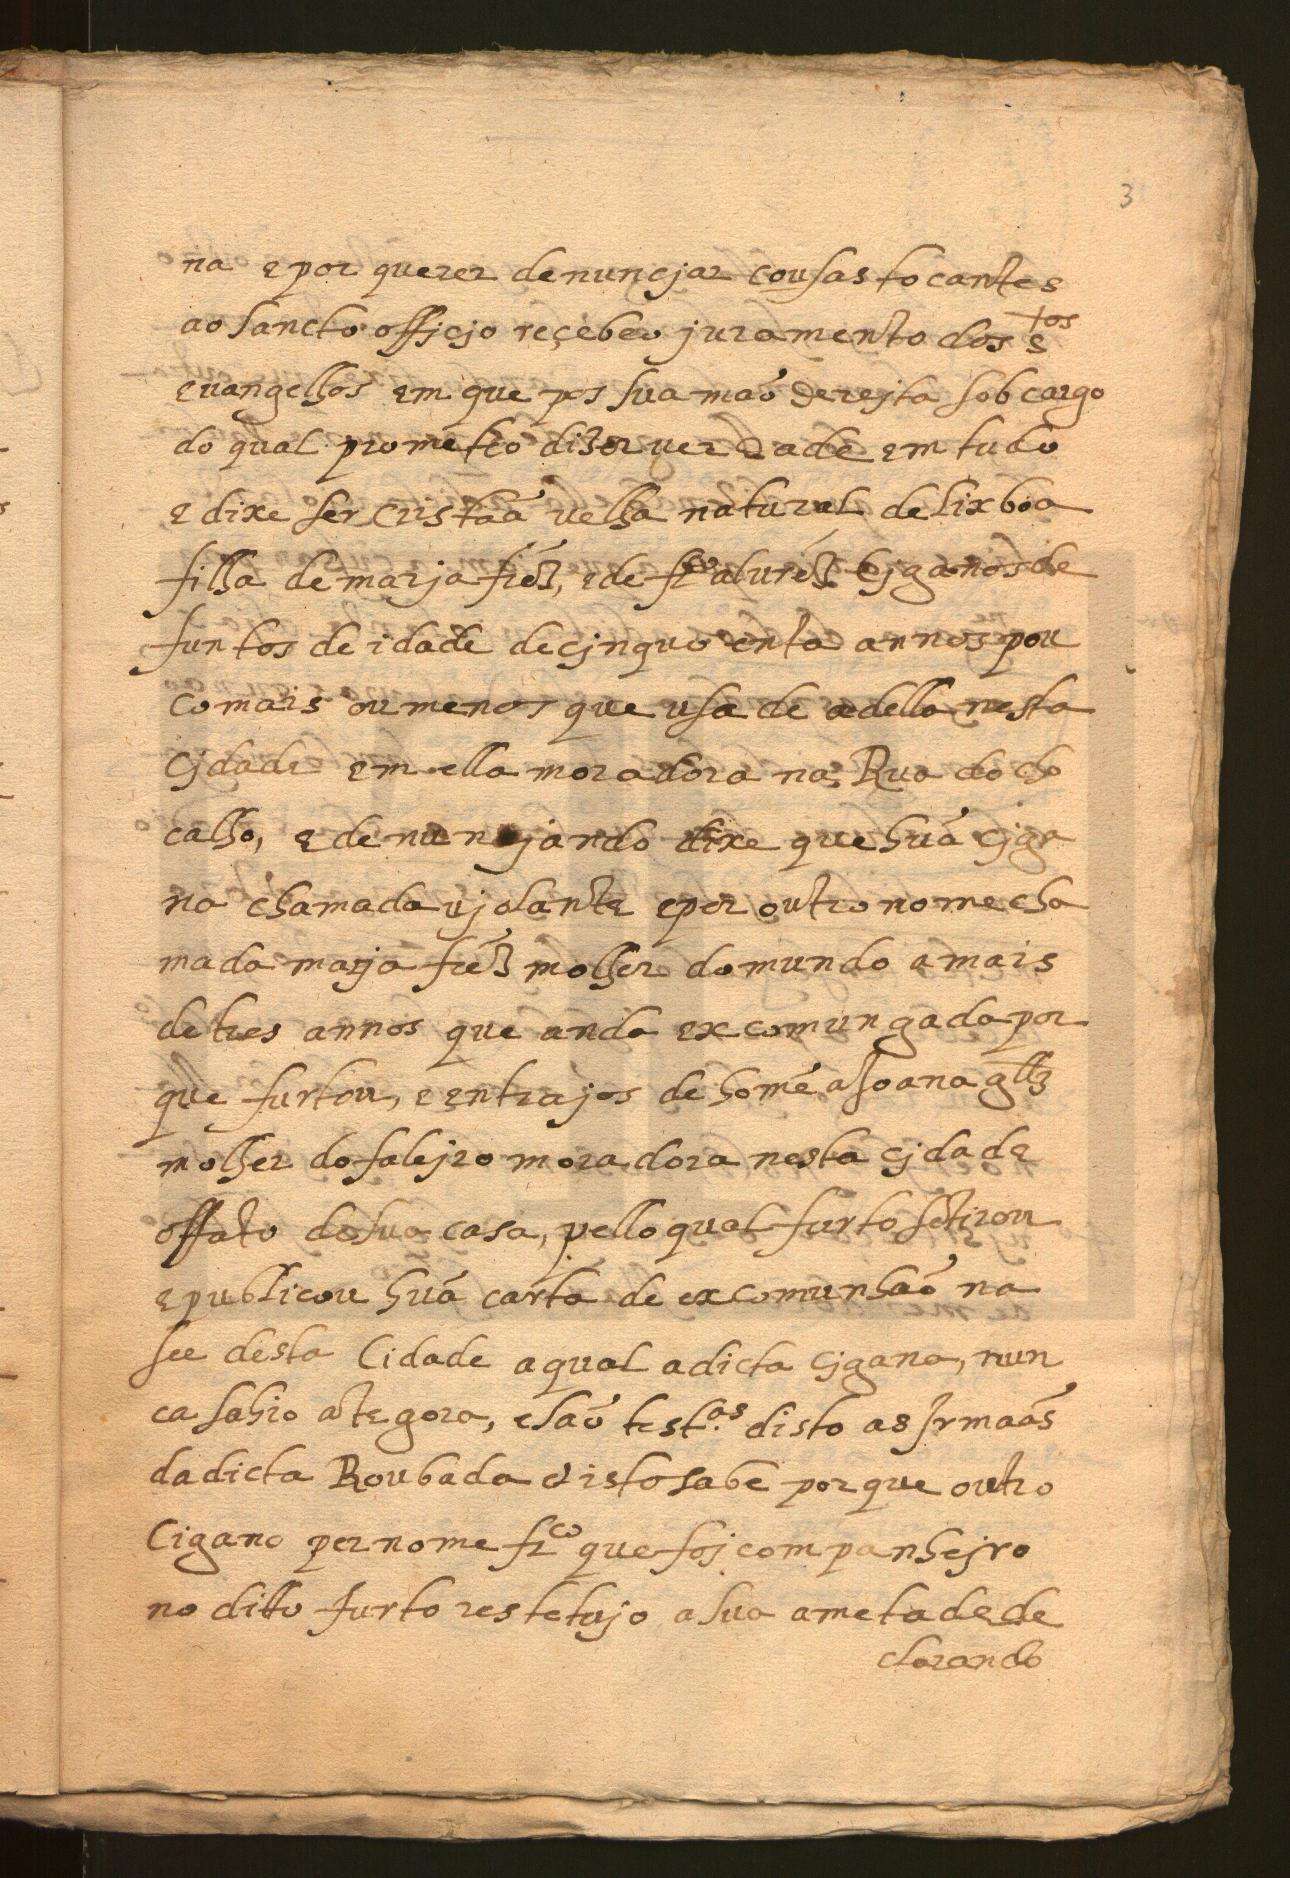 3
na e por querer denunçjar cousas tocantes
ao sancto offiçjo reçebeo juramento dos s^tos
euangelhos em que pos sua maõ derejta sob cargo
do qual prometeo dizer uerdade em tudo
e dixe ser cristaã uelha natural de lixboa
filha de marja frz̃, e de fr^co alurez̃ çjganos de
funtos de idade de çjnquoenta annos pou
co mais ou menos que usa de adella nesta
Cjdade em ella moradora na Rua do cho
calho, e denunçjando dixe que huã çjga
na chamada vjolante e por outro nome cha
mada marja frz̃ molher do mundo a mais
de tres annos que anda excomungada por
que furtou, e em trajos de homẽ a Joana glz
molher do falejro moradora nesta çjdade
o ffato de sua casa, pello qual furto se tirou
e publicou huã carta de excomunhaõ na
see desta Cidade a qual a dicta çjgana, nun
ca sahio ategora, e saõ test^as disto as Jrmaãs
da dicta Roubada e isto sabe por que outro
Cigano per nome fr^co que foj companhejro
no ditto furto restetujo a sua ametade de
clarando